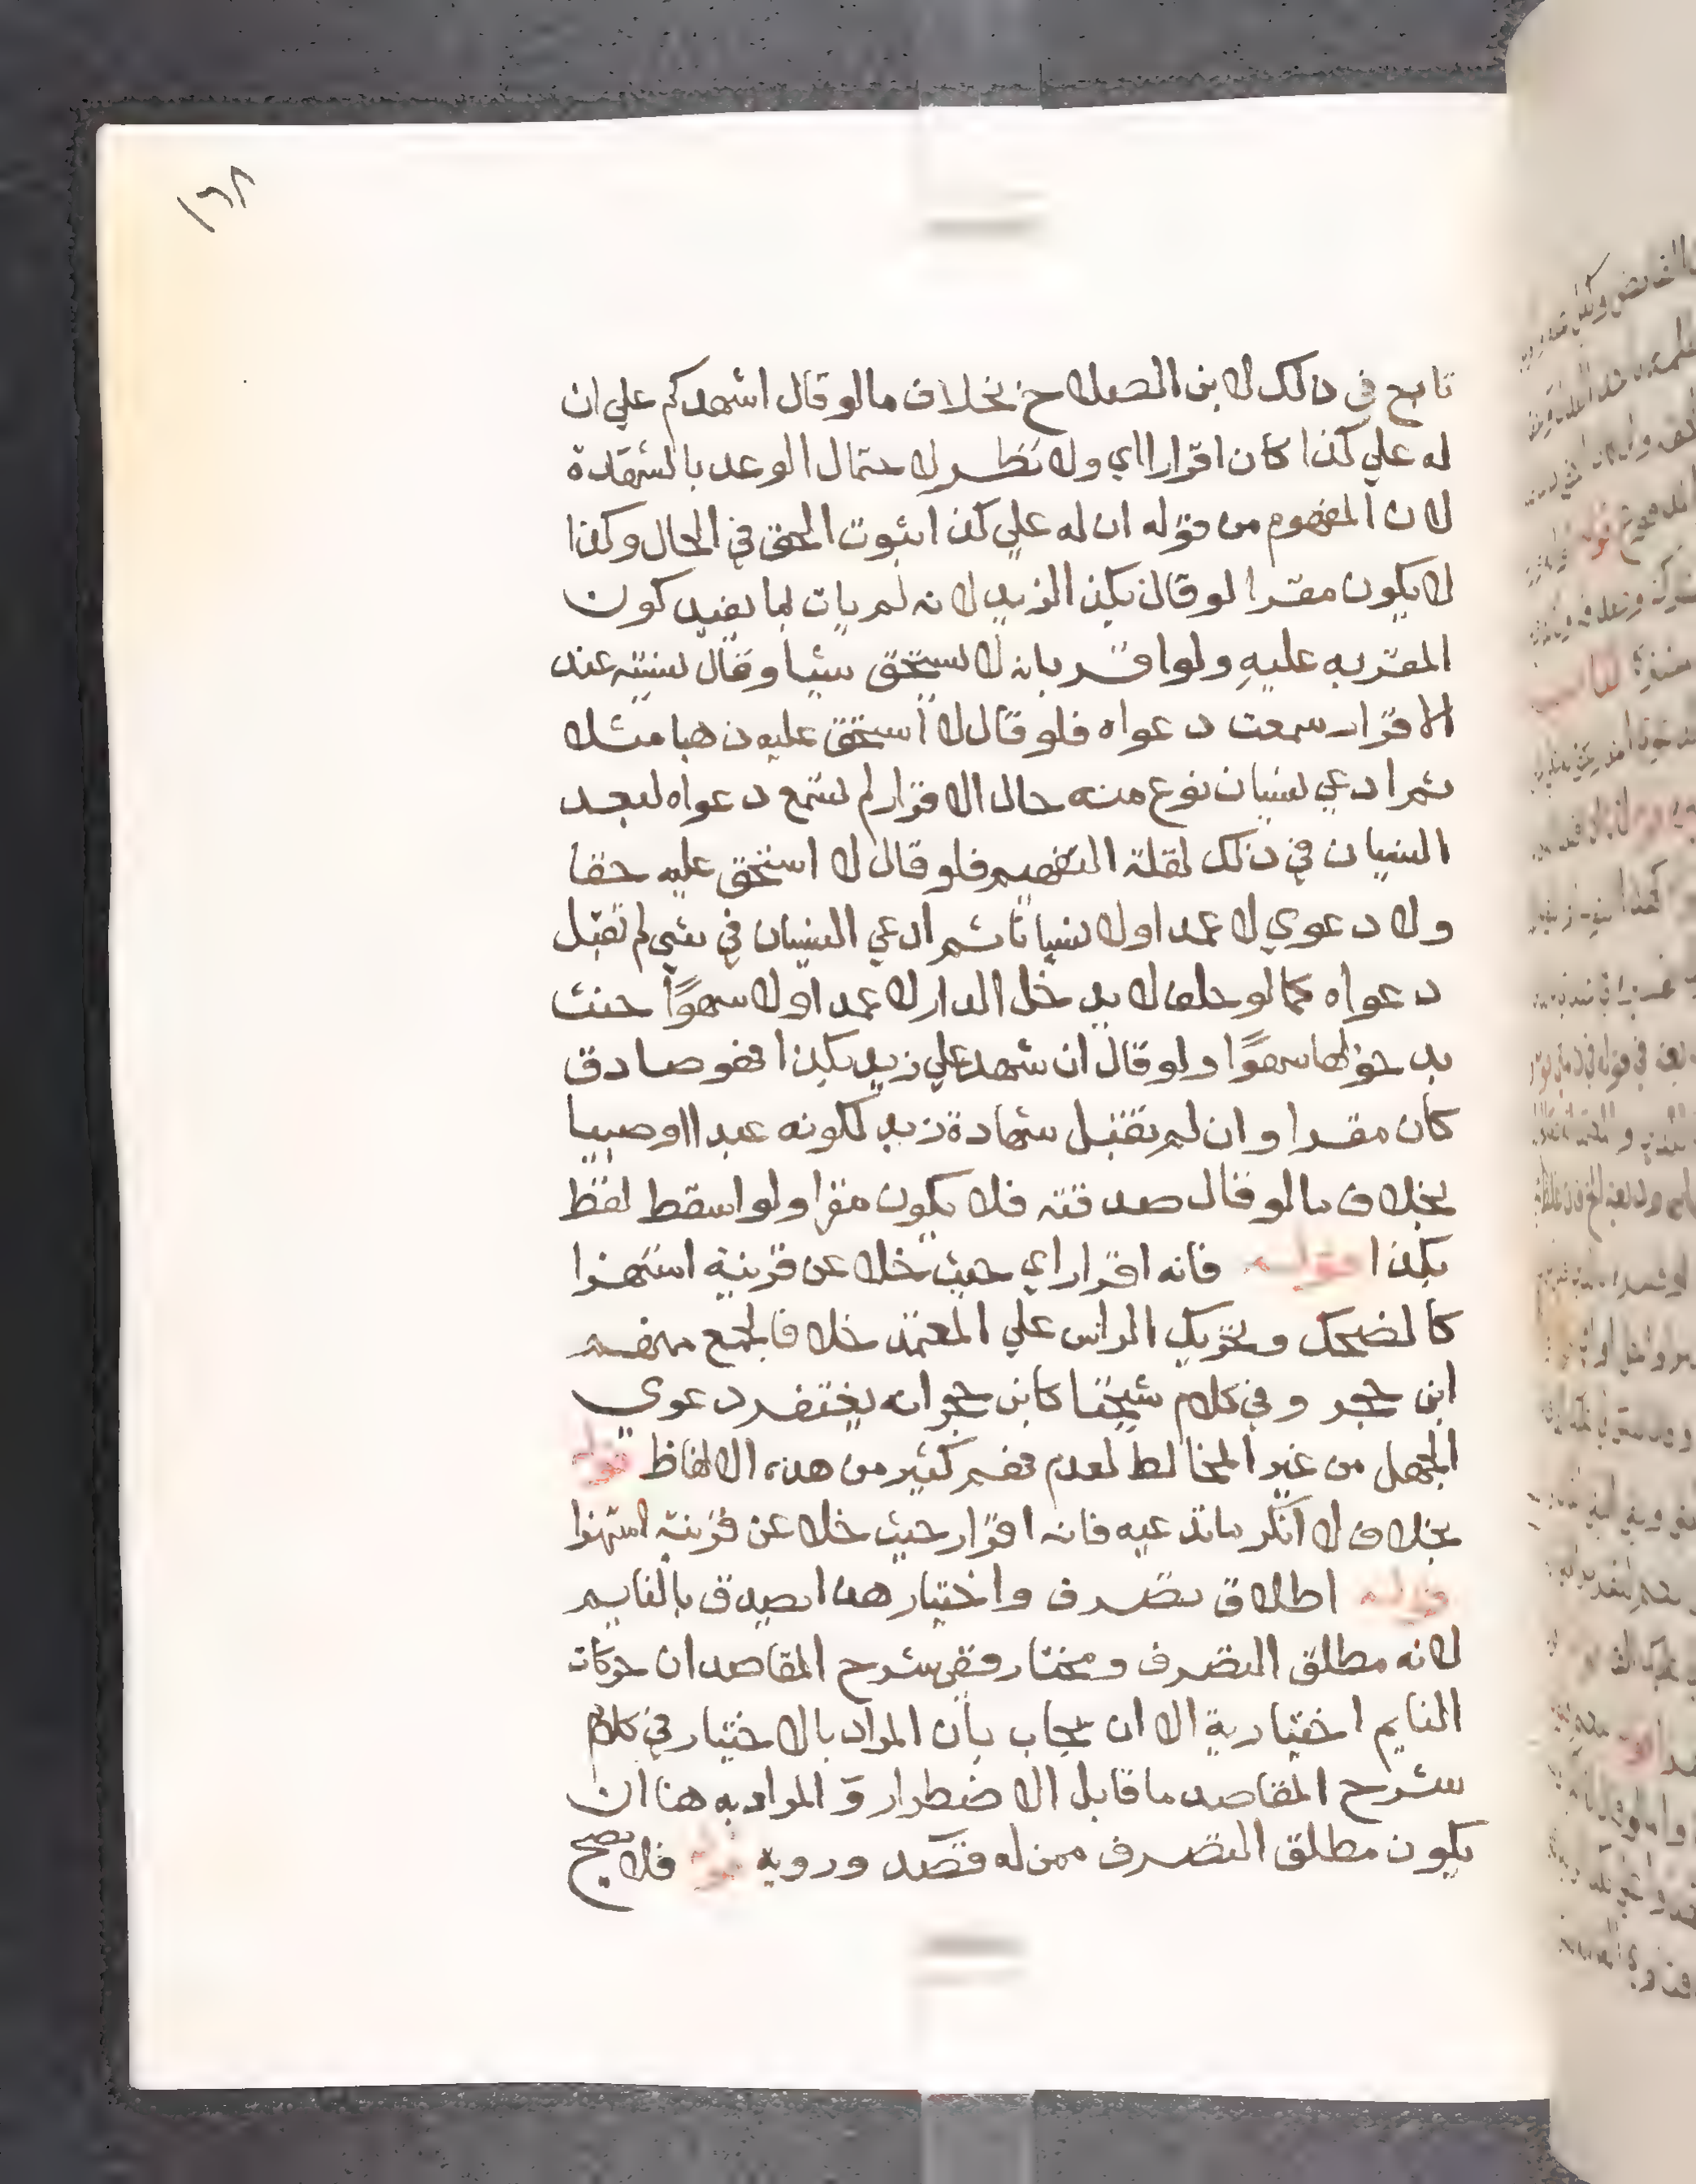 ١٦٨
تابع في ذالك لابن الصلاح بخلاف مالو قال اشهدكم علي ان
له علي كذا كان اقرارا اي ولا نظر لاحتمال الوعد بالشهادة
لان المفهوم من قوله ان له علي كذا ثبوت الحق في الحال وكذا
لا يكون مقرا لو قال بكذا لزيد لانه لم يات بما يفيد كون
المقر به عليه ولو اقر بانه لا يستحق شيا وقال نسيته عند
الاقرار سمعت دعواه فلو قال لا استحق عليه ذهبا مثلا
ثم ادعي نسيان نوع منه حال الاقرار لم تسمع دعواه لبعد
النسيان في ذلك لقلة التفهيم فلو قال لا استحق عليه حقا
ولا دعوي لا عمدا ولا نسيانا ثم ادعي النسيان في شي لم تقبل
دعواه كما لو حلف لا يدخل الدار لا عمدا ولا سهوًا حنث
بدخولها سهوًا ولو قال ان شهد علي زيد بكذا فهو صادق
كان مقرا وان لم تقبل شهادة زيد لكونه عبدا او صبيا
بخلاف ما لو قال صدقته فلا يكون مقرا ولو اسقط لفظ
بكذا قوله فانه اقرار اي حيث خلا عن قرينة استهزا
كالضحك وتحريك الراس علي المعتمد خلافا لجمع منهم
ابن حجر وفي كلام شيخنا كابن حجر انه يغتفر دعوي
الجهل من غير المخالط لعدم فهم كثير من هذه الالفاظ قوله
بخلاف لا انكر ما تدعيه فانه اقرار حيث خلا عن قرينة استهزا
قوله اطلاق تصرف واختيار هذا يصدق بالنايم
لانه مطلق التصرف ومختار وفي شرح المقاصد ان حركات
النايم اختيارية الا ان يجاب بان المراد بالاختيار في كلام
شرح المقاصد ما قابل الاضطرار و المراد به هنا ان
يكون مطلق التصرف ممن له قصد وروية قوله فلا يصح